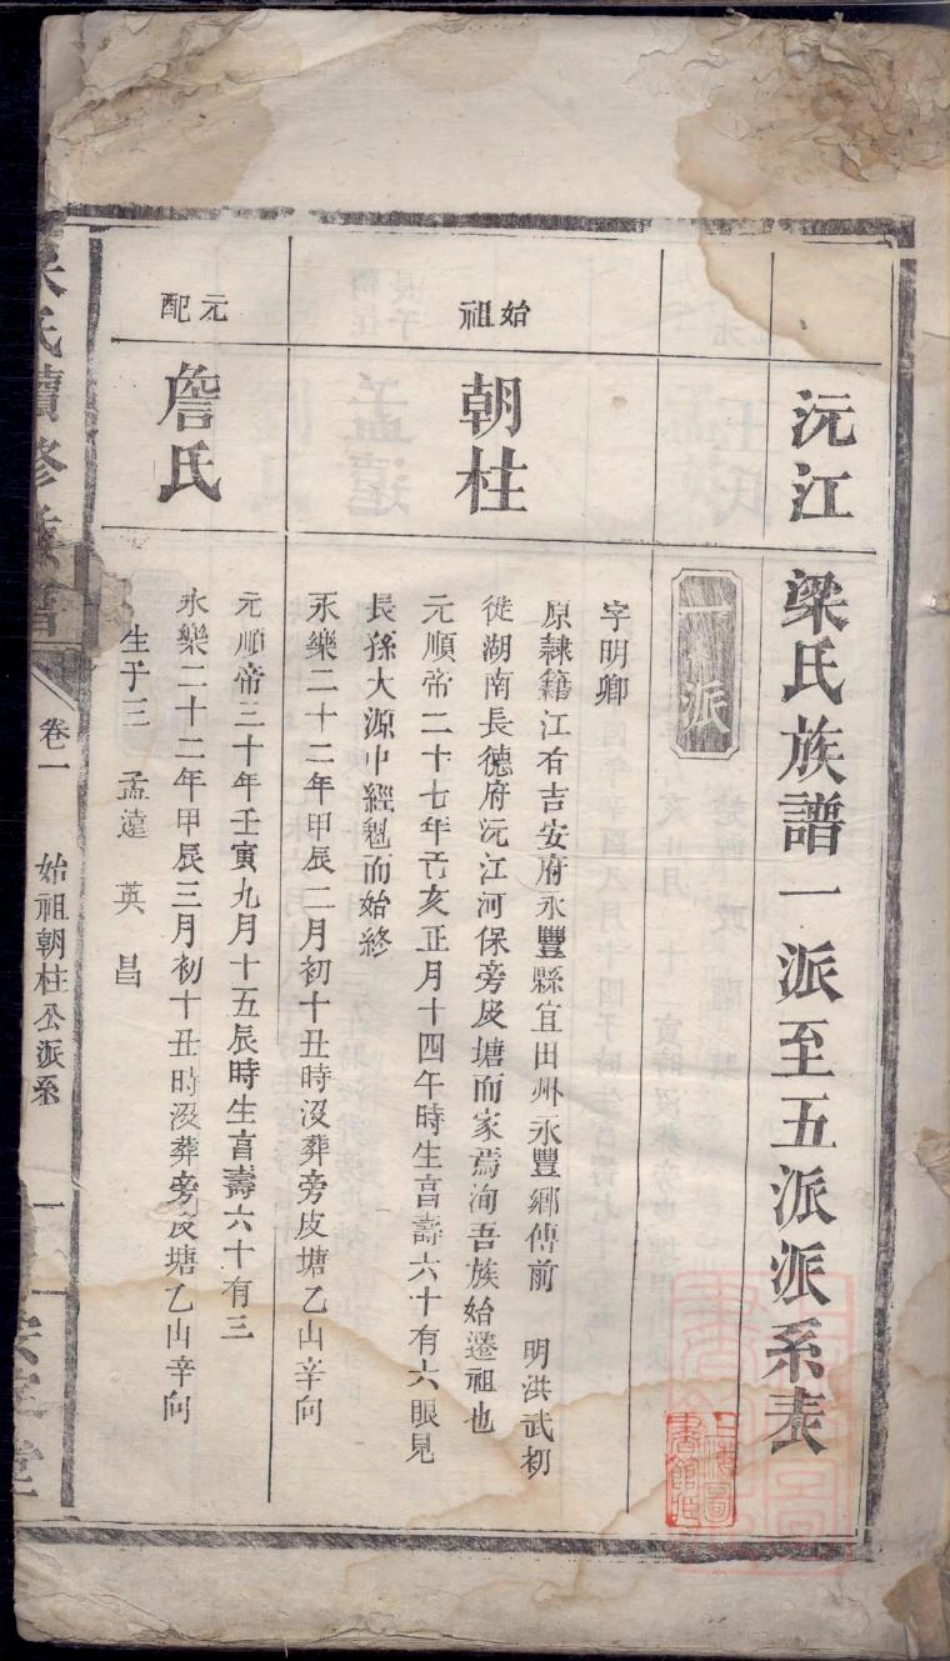 沅江 梁氏族譜一派至五派派系表
一派
始祖
朝柱
字明卿
原隸籍江右吉安府永豐縣宜田州永豐鄉傅前 明洪武初
徙湖南長德府沅江河保旁皮塘而家焉洵吾族始遷祖也
元順帝二十七年亥正月十四午時生享壽六十有六眼見
長孫大源中經魁而始終
永樂二十二年甲辰二月初十丑時沒葬旁皮塘乙山辛向
元配
詹氏
元順帝三十年壬寅九月十五辰時生享壽六十有三
永樂二十二年甲辰三月初十丑時沒葬旁皮塘乙山辛向
生子三 孟達 英 昌
氏續修
卷一 始祖朝柱公派系 一
堂
上海圖
書館